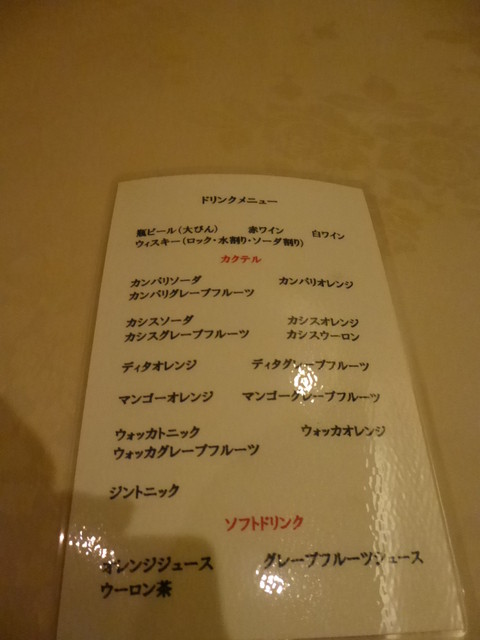 ドリンクメニュー
瓶ビール(大びん) 赤ワイン 白ワイン
ウィスキー(ロック・水割り・ソーダ割り)
カクテル
カンパリソーダ カンパリオレンジ
カンパリグレープフルーツ
カシスソーダ カシスオレンジ
カシスグレープフルーツ カシスウーロン
ディタオレンジ ディタグレープフルーツ
マンゴーオレンジ マンゴーグレープフルーツ
ウォッカトニック ウォッカオレンジ
ウォッカグレープフルーツ
ジントニック
ソフトドリンク
オレンジジュース グレープフルーツジュース
ウーロン茶